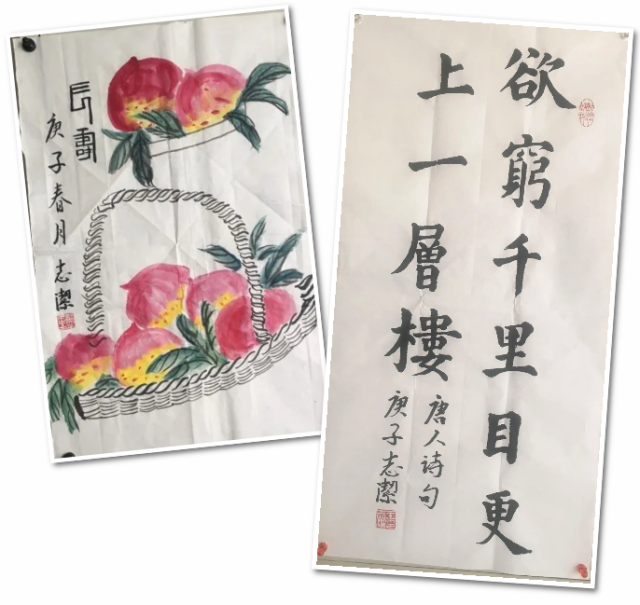 長壽
庚子春月 志潔
欲窮千里目更
上一層樓
唐人诗句
庚子志潔